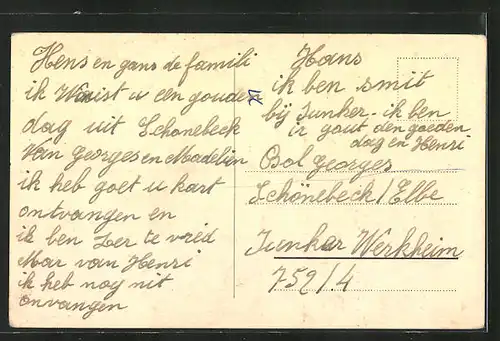 Hens en gans de famili
ik Wnist u een goude
dag uit Schonebeck
Van Georges en Madelien
ik heb goet u kart
ontvangen en
ik ben zer te vréd
Mar van Henri
ik heb nog nit
onvangen
Hans
ik ben smit
bij Junker - ik ben
ir gout den goeden
dag en Henri
Bol Georges
Schönebeck/Elbe
Junker Werkheim
752/4